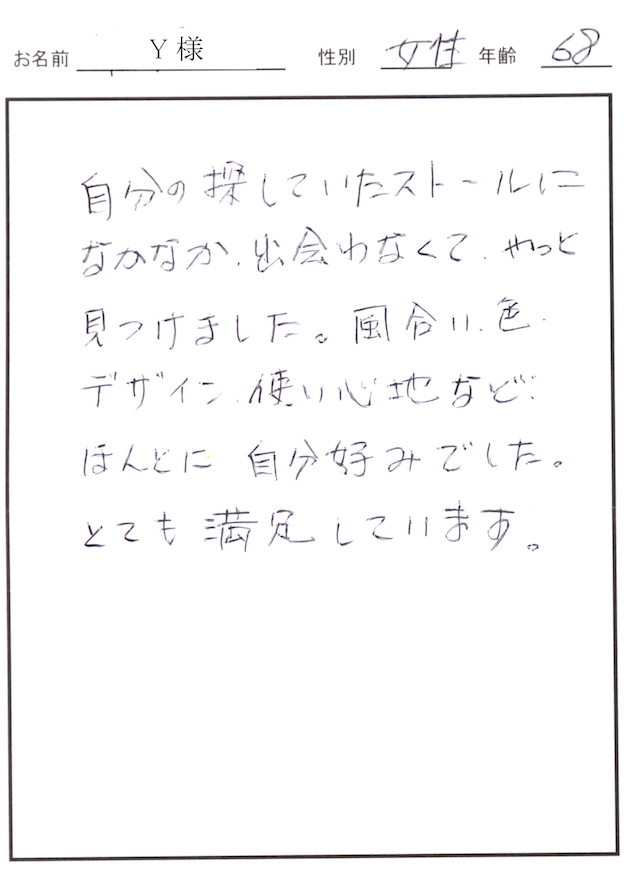 お名前 Y 様 性別 女性 年齢 68
自分の探していたストールに
なかなか、出会わなくて、やっと
見つけました。風合い、色、
デザイン、使い心地など、
ほんとに 自分好みでした。
とても満足しています。